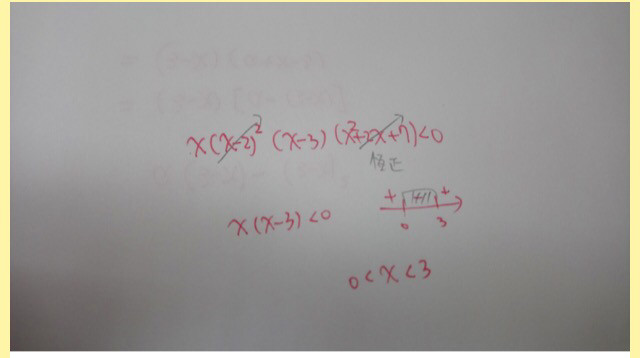 x(x-2)²(x-3)(x²+2x+7)<0
恆正
x(x-3)<0
+ +
0 3
0<x<3